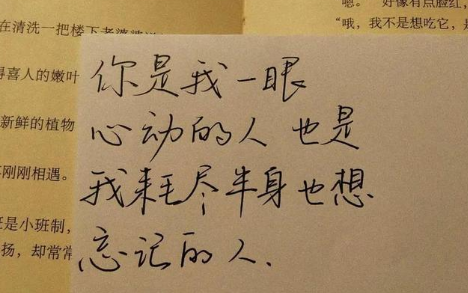 嗯。 好像有点脸红,
“哦,我不是想吃它,
在清洗一把楼下老婆婆
喜人的嫩叶
新鲜的植物
刚刚相遇。
是小班制,
扬,却常常
你是我一眼
心动的人 也是
我耗尽半身也想
忘记的人.